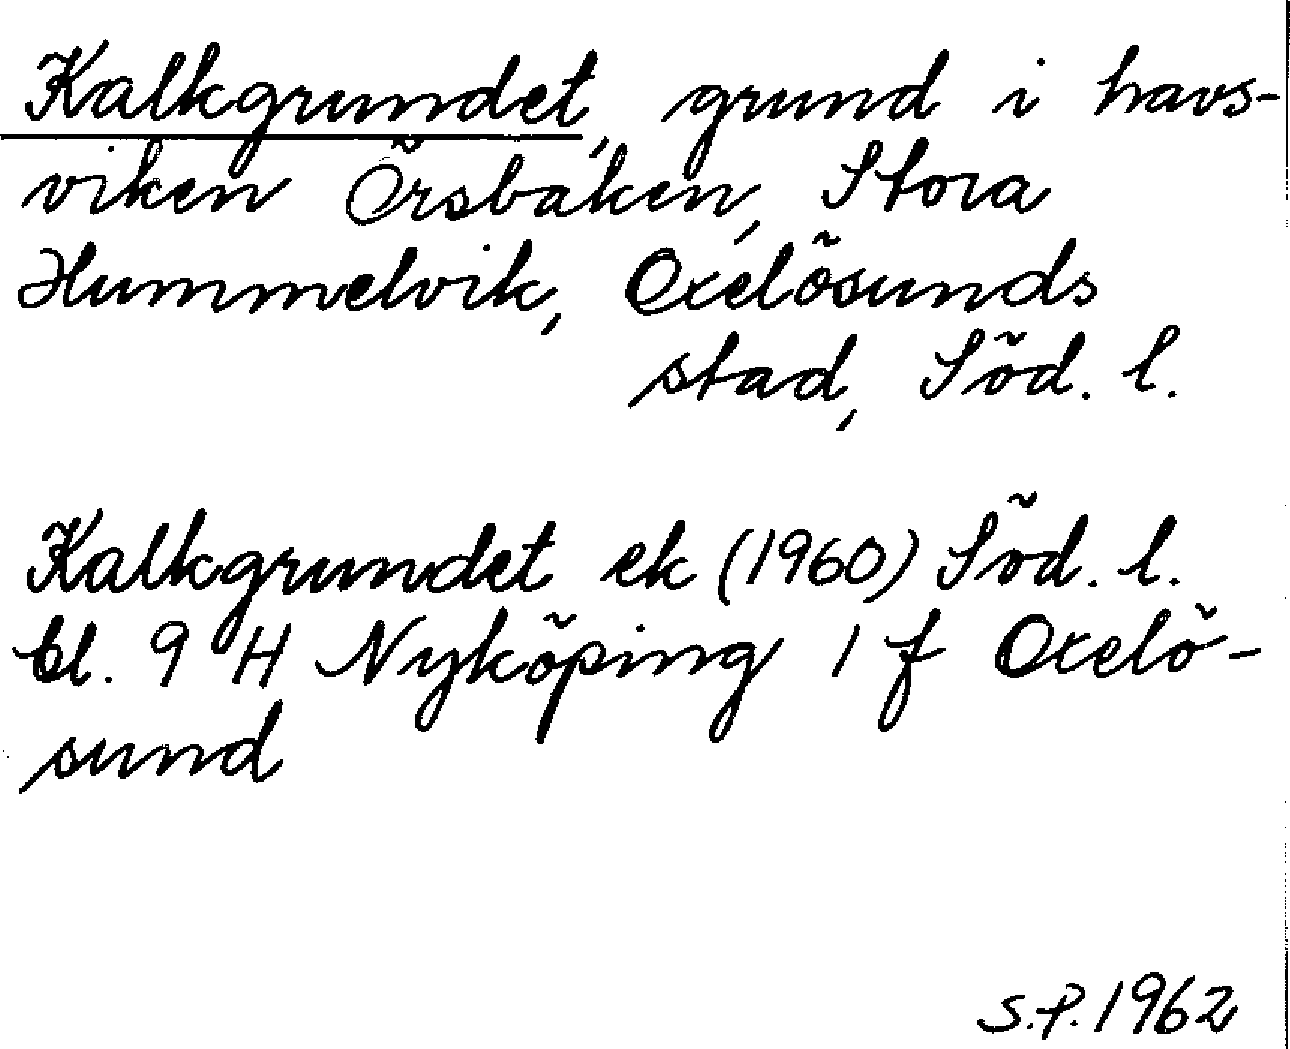 Kalkgrundet, grund i havs-
viken Örsbaken, Stora
Hummelvik, Oxelösunds
stad, Söd. l.
Kalkgrundet ek (1960) Söd. l.
bl. 9 H Nyköping 1 f Oxelö-
sund
S.P. 1962